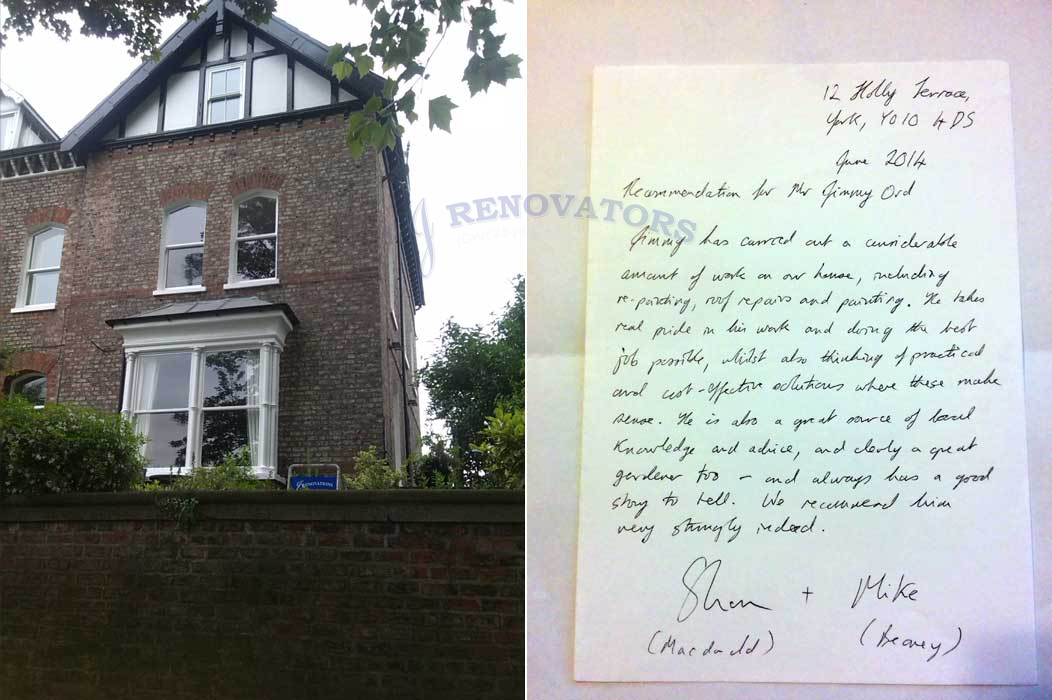 RENOVATORS
RENOVATIONS
12 Holly Terrace,
York, YO10 4DS
June 2014
Recommendation for Mr Jimmy Ord
Jimmy has carried out a considerable
amount of work on our house, including
re-pointing, roof repairs and painting. He takes
real pride in his work and doing the best
job possible, whilst also thinking of practical
and cost-effective solutions where these make
sense. He is also a great source of local
knowledge and advice, and clearly a great
gardener too - and always has a good
story to tell. We recommend him
very strongly indeed.
+ Mike
(Macdonald)